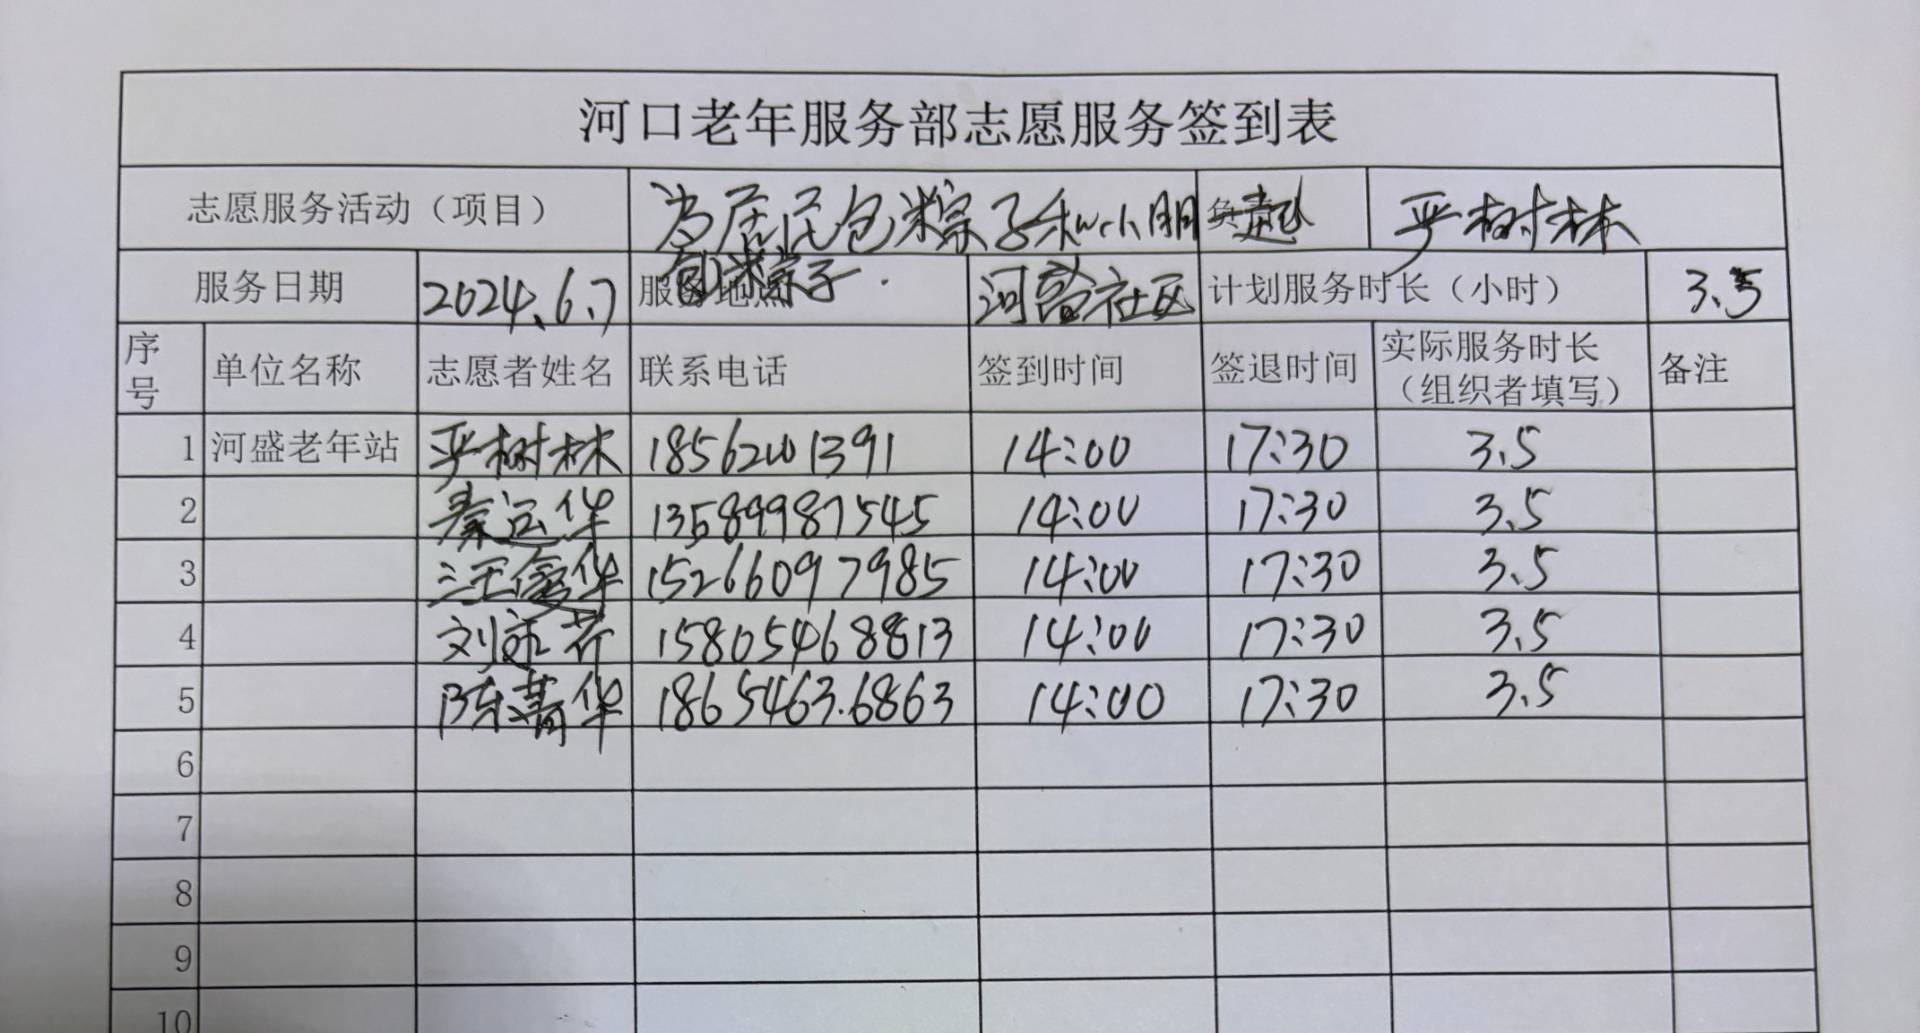 河口老年服务部志愿服务签到表
志愿服务活动（项目） 为居民包粽子和小朋一起 严树林
包粽子.
服务日期 2024.6.7 河 社区 计划服务时长（小时） 3.5
序号 单位名称 志愿者姓名 联系电话 签到时间 签退时间 实际服务时长（组织者填写） 备注
1 河盛老年站 严树林 18562001391 14:00 17:30 3.5
2 秦运华 13589987545 14:00 17:30 3.5
3 华 15266097985 14:00 17:30 3.5
4 刘 芹 15805468813 14:00 17:30 3.5
5 陈菁华 1865463.6863 14:00 17:30 3.5
6
7
8
9
10